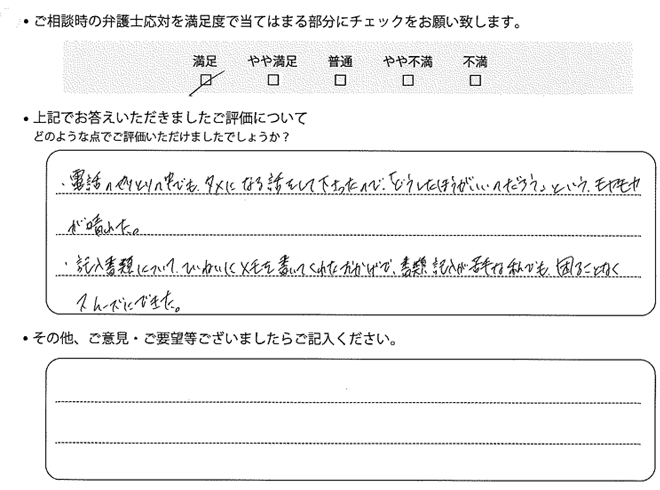 ・ご相談時の弁護士応対を満足度で当てはまる部分にチェックをお願い致します。
満足 やや満足 普通 やや不満 不満
・上記でお答えいただきましたご評価について
どのような点でご評価いただけましたでしょうか？
・電話のやりとりの中でも、タメになる話をして下さったので、「どうしたほうがいいのだろう」という、モヤモヤ
が晴れた。
・記入書類について、ていねいにメモを書いてくれたおかげで、書類記入が苦手な私でも、困ることなく
スムーズにできた。
・その他、ご意見・ご要望等ございましたらご記入ください。